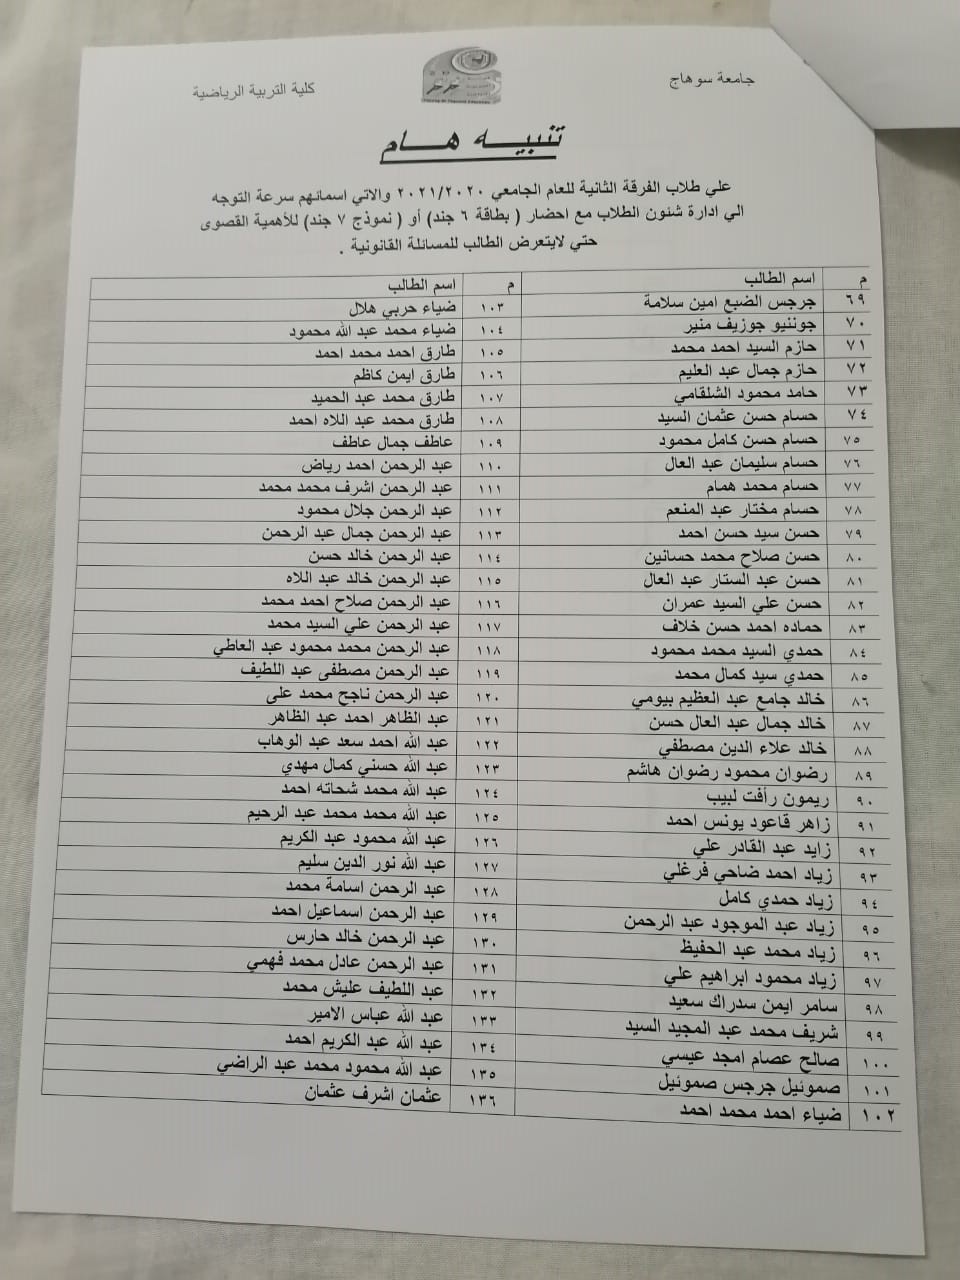 جامعة سوهاج
كلية التربية الرياضية
تنبيه هام
علي طلاب الفرقة الثانية للعام الجامعي ٢٠٢١/٢٠٢٠ والاتي اسمائهم سرعة التوجه
الي ادارة شئون الطلاب مع احضار ( بطاقة ٦ جند) أو ( نموذج ٧ جند) للأهمية القصوى
حتي لايتعرض الطالب للمسائلة القانونية .
م اسم الطالب
٦٩ جرجس الضبع امين سلامة
٧٠ جوننيو جوزيف منير
٧١ حازم السيد احمد محمد
٧٢ حازم جمال عبد العليم
٧٣ حامد محمود الشلقامي
٧٤ حسام حسن عثمان السيد
٧٥ حسام حسن كامل محمود
٧٦ حسام سليمان عبد العال
٧٧ حسام محمد همام
٧٨ حسام مختار عبد المنعم
٧٩ حسن سيد حسن احمد
٨٠ حسن صلاح محمد حسانين
٨١ حسن عبد الستار عبد العال
٨٢ حسن علي السيد عمران
٨٣ حماده احمد حسن خلاف
٨٤ حمدي السيد محمد محمود
٨٥ حمدي سيد كمال محمد
٨٦ خالد جامع عبد العظيم بيومي
٨٧ خالد جمال عبد العال حسن
٨٨ خالد علاء الدين مصطفي
٨٩ رضوان محمود رضوان هاشم
٩٠ ريمون رأفت لبيب
٩١ زاهر قاعود يونس احمد
٩٢ زايد عبد القادر علي
٩٣ زياد احمد ضاحي فرغلي
٩٤ زياد حمدي كامل
٩٥ زياد عبد الموجود عبد الرحمن
٩٦ زياد محمد عبد الحفيظ
٩٧ زياد محمود ابراهيم علي
٩٨ سامر ايمن سدراك سعيد
٩٩ شريف محمد عبد المجيد السيد
١٠٠ صالح عصام امجد عيسي
١٠١ صموئيل جرجس صموئيل
١٠٢ ضياء احمد محمد احمد
م اسم الطالب
١٠٣ ضياء حربي هلال
١٠٤ ضياء محمد عبد الله محمود
١٠٥ طارق احمد محمد احمد
١٠٦ طارق ايمن كاظم
١٠٧ طارق محمد عبد الحميد
١٠٨ طارق محمد عبد اللاه احمد
١٠٩ عاطف جمال عاطف
١١٠ عبد الرحمن احمد رياض
١١١ عبد الرحمن اشرف محمد محمد
١١٢ عبد الرحمن جلال محمود
١١٣ عبد الرحمن جمال عبد الرحمن
١١٤ عبد الرحمن خالد حسن
١١٥ عبد الرحمن خالد عبد اللاه
١١٦ عبد الرحمن صلاح احمد محمد
١١٧ عبد الرحمن علي السيد محمد
١١٨ عبد الرحمن محمد محمود عبد العاطي
١١٩ عبد الرحمن مصطفى عبد اللطيف
١٢٠ عبد الرحمن ناجح محمد علي
١٢١ عبد الظاهر احمد عبد الظاهر
١٢٢ عبد الله احمد سعد عبد الوهاب
١٢٣ عبد الله حسني كمال مهدي
١٢٤ عبد الله محمد شحاته احمد
١٢٥ عبد الله محمد محمد عبد الرحيم
١٢٦ عبد الله محمود عبد الكريم
١٢٧ عبد الله نور الدين سليم
١٢٨ عبد الرحمن اسامة محمد
١٢٩ عبد الرحمن اسماعيل احمد
١٣٠ عبد الرحمن خالد حارس
١٣١ عبد الرحمن عادل محمد فهمي
١٣٢ عبد اللطيف عليش محمد
١٣٣ عبد الله عباس الامير
١٣٤ عبد الله عبد الكريم احمد
١٣٥ عبد الله محمود محمد عبد الراضي
١٣٦ عثمان اشرف عثمان